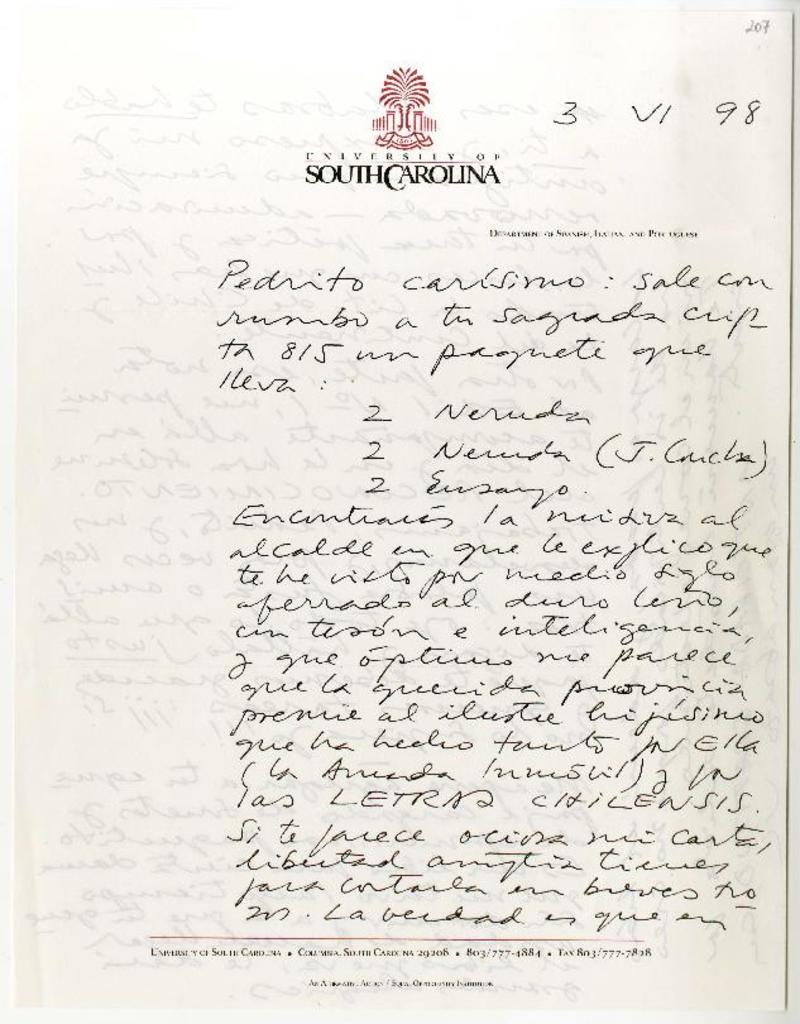 207
3 VI 98
UNIVERSITY OF
SOUTH CAROLINA
DEPARTMENT OF SPANISH, ITALIAN, AND PORTUGUESE
Pedrito carísimo: sale con
rumbo a tu sagrada crip_
ta 815 un paquete que
lleva:
2 Neruda
2 Neruda (J. Concha)
2 Ensayo.
Encontrarás la misiva al
alcalde en que le explico que
te he visto por medio siglo
aferrado al duro leño,
con tesón e inteligencia,
y que óptimo me parece
que la querida provincia
premie al ilustre hijísimo
que ha hecho tanto por Ella
(la Amada Inmóvil) y por
las LETRAS CHILENSIS.
Si te parece ociosa mi carta,
libertad amplia tienes
para cortarla en breves tro_
zos. La verdad es que en
UNIVERSITY OF SOUTH CAROLINA • COLUMBIA, SOUTH CAROLINA 29208 • 803/777-4884 • FAX 803/777-7828
AN AFFIRMATIVE ACTION / EQUAL OPPORTUNITY INSTITUTION